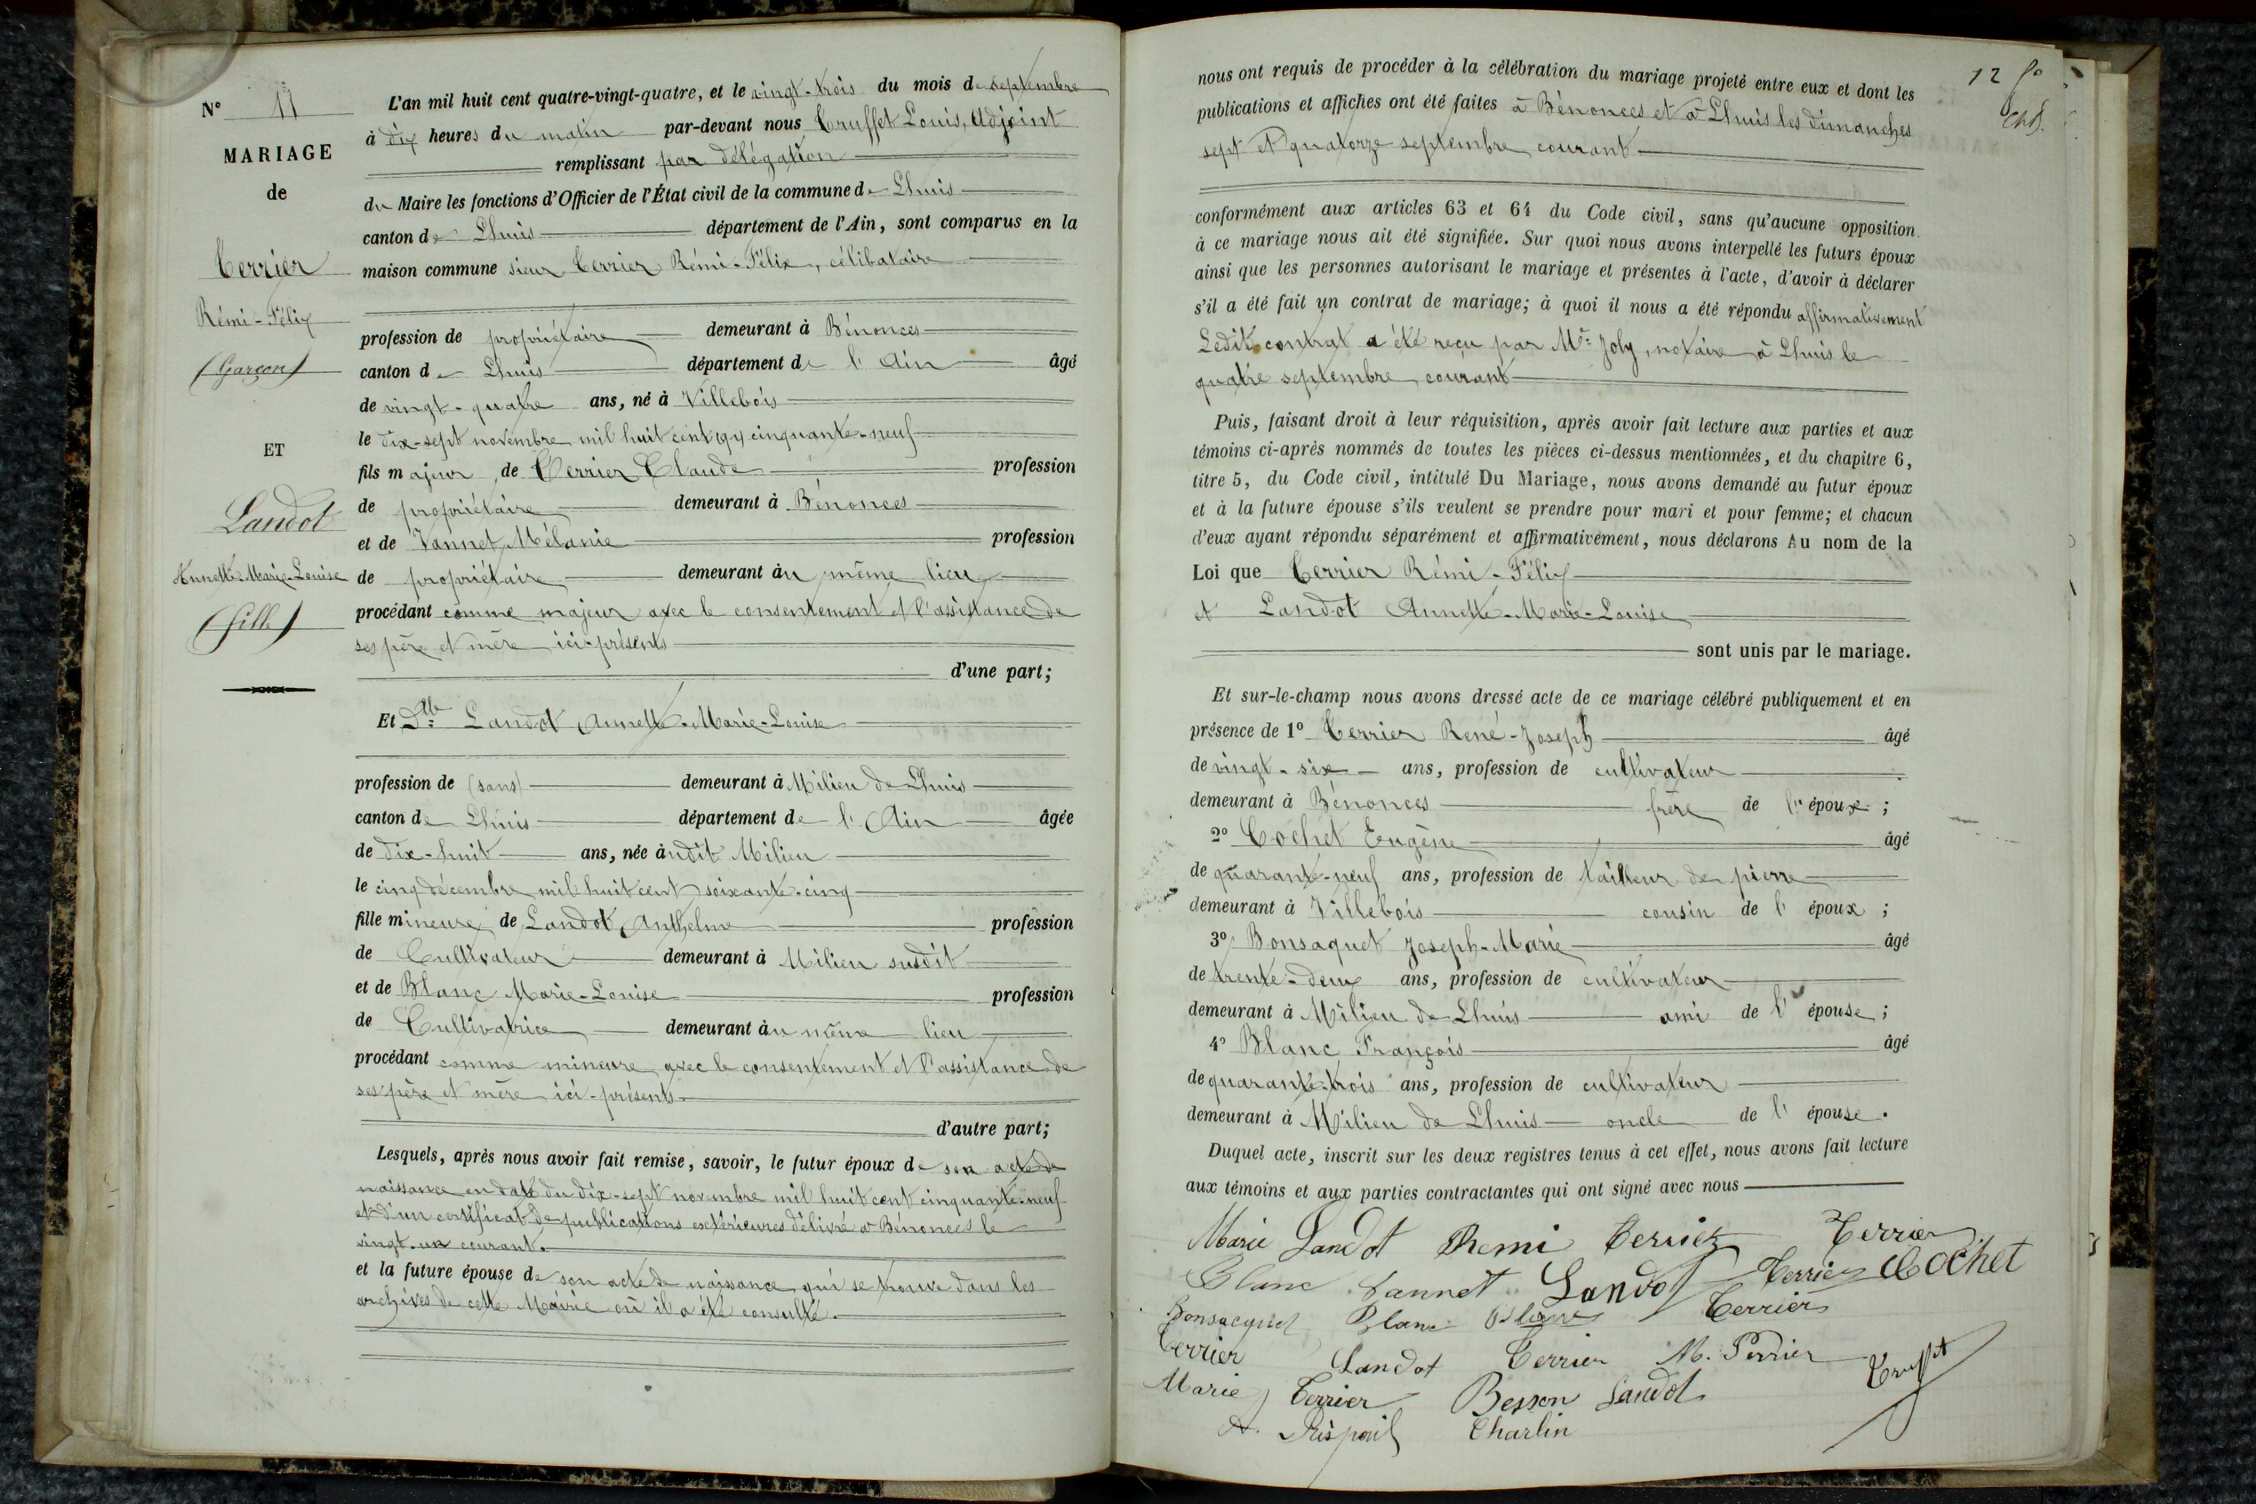 N° 11
MARIAGE
de
Terrier
Rémi-Félix
(Garçon)
ET
Landot
Annette-Marie-Louise
(fille)
L'an mil huit cent quatre-vingt-quatre, et le vingt-trois du mois de septembre
à dix heures du matin par-devant nous Truffet Louis, Adjoint
remplissant par délégation
du Maire les fonctions d'Officier de l'État civil de la commune de Lhuis
canton de Lhuis département de l'Ain, sont comparus en la
maison commune sieur Terrier Rémi-Félix, célibataire
profession de propriétaire demeurant à Bénonces
canton de Lhuis département de l'Ain âgé
de vingt-quatre ans, né à Villebois
le dix-sept novembre mil huit cent cinquante-neuf
fils majeur, de Terrier Claude profession
de propriétaire demeurant à Bénonces
et de Vannet Mélanie profession
de propriétaire demeurant au même lieu
procédant comme majeur avec le consentement et l'assistance de
ses père et mère ici-présents
d'une part;
Et Dlle Landot Annette-Marie-Louise
profession de (sans) demeurant à Milieu de Lhuis
canton de Lhuis département de l'Ain âgée
de dix-huit ans, née audit Milieu
le cinq décembre mil huit cent soixante-cinq
fille mineure de Landot Anthelme profession
de Cultivateur demeurant à Milieu susdit
et de Blanc Marie-Louise profession
de Cultivatrice demeurant au même lieu
procédant comme mineure avec le consentement et l'assistance de
ses père et mère ici-présents
d'autre part;
Lesquels, après nous avoir fait remise, savoir, le futur époux de son acte de
naissance en date du dix-sept novembre mil huit cent cinquante-neuf
et d'un certificat de publications extérieures délivré à Bénonces le
vingt-un courant.
et la future épouse de son acte de naissance qui se trouve dans les
archives de cette Mairie où il a été consulté.
12
nous ont requis de procéder à la célébration du mariage projeté entre eux et dont les
publications et affiches ont été faites à Bénonces et à Lhuis les dimanches
sept et quatorze septembre courant
conformément aux articles 63 et 64 du Code civil, sans qu'aucune opposition
à ce mariage nous ait été signifiée. Sur quoi nous avons interpellé les futurs époux
ainsi que les personnes autorisant le mariage et présentes à l'acte, d'avoir à déclarer
s'il a été fait un contrat de mariage; à quoi il nous a été répondu affirmativement
Ledit contrat a été reçu par Me Joly, notaire à Lhuis le
quatre septembre courant
Puis, faisant droit à leur réquisition, après avoir fait lecture aux parties et aux
témoins ci-après nommés de toutes les pièces ci-dessus mentionnées, et du chapitre 6,
titre 5, du Code civil, intitulé Du Mariage, nous avons demandé au futur époux
et à la future épouse s'ils veulent se prendre pour mari et pour femme; et chacun
d'eux ayant répondu séparément et affirmativement, nous déclarons Au nom de la
Loi que Terrier Rémi-Félix
et Landot Annette-Marie-Louise
sont unis par le mariage.
Et sur-le-champ nous avons dressé acte de ce mariage célébré publiquement et en
présence de 1° Terrier René-Joseph âgé
de vingt-six ans, profession de cultivateur
demeurant à Bénonces frère de l'époux;
2° Cochet Eugène âgé
de quarante-neuf ans, profession de tailleur de pierre
demeurant à Villebois cousin de l'époux;
3° Bonsaquet Joseph-Marie âgé
de trente-deux ans, profession de cultivateur
demeurant à Milieu de Lhuis ami de l'épouse;
4° Blanc François âgé
de quarante-trois ans, profession de cultivateur
demeurant à Milieu de Lhuis oncle de l'épouse.
Duquel acte, inscrit sur les deux registres tenus à cet effet, nous avons fait lecture
aux témoins et aux parties contractantes qui ont signé avec nous
Marie Landot Remi Terrier Terrier
Blanc Vannet Landot Terrier Cochet
Bonsaquet Blanc Terrier
Terrier Landot Terrier M. Perrier Truffet
Marie Terrier Besson Landot
A. Charlin